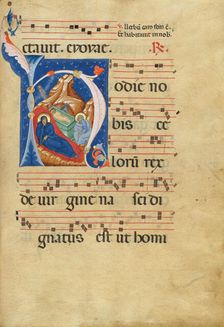 Verbū caro factū ē.
et habitavit in nob
ctavit. evovac. R.
Hodie no
bis ce
lorū rex
de vir gine na sci di
gnatus est ut homi